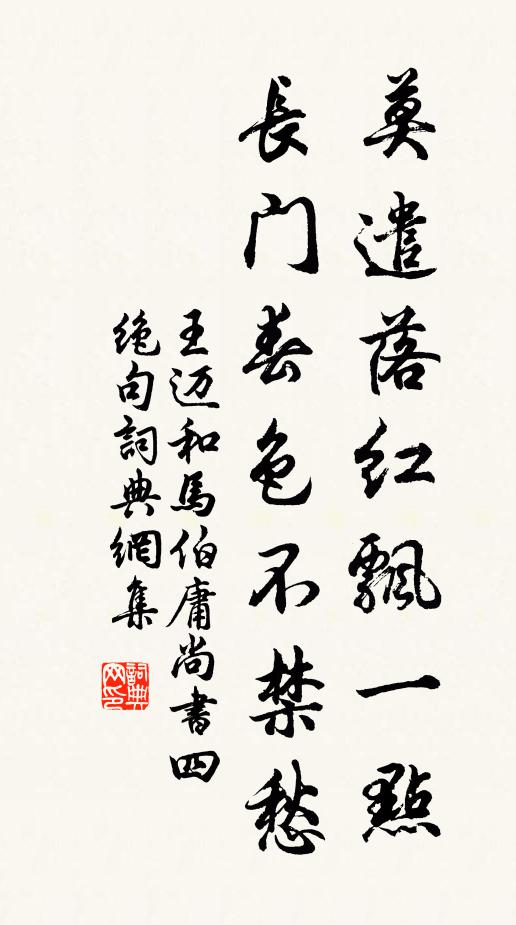 莫遣落红飄一點
長門春色不禁愁
王迈和馬伯庸尚書四
绝句詞典網集
詞典
网印